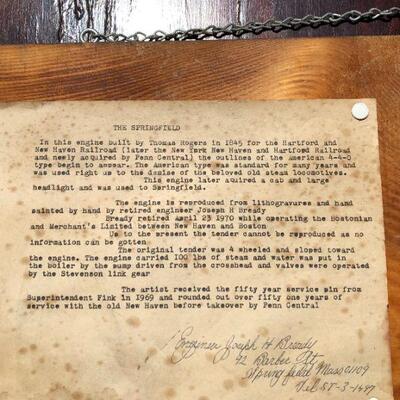 THE SPRINGFIELD
In this engine built by Thomas Rogers in 1845 for the Hartford and
New Haven Railroad (later the New York New Haven and Hartford Railroad
and newly acquired by Penn Central) the outlines of the American 4-4-0
type begin to appear. The American type was standard for many years and
was used right up to the demise of the beloved old steam locomotives.
This engine later aquired a cab and large
headlight and was used to Springfield.
The engine is reproduced from lithogravures and hand
painted by hand by retired engineer Joseph H Bready
Bready retired April 23 1970 while operating the Bostonian
and Merchant's Limited between New Haven and Boston
Up to the present the tender cannot be reproduced as no
information can be gotten
The original tender was 4 wheeled and sloped toward
the engine. The engine carried 100 lbs of steam and water was put in
the boiler by the pump driven from the crosshead and valves were operated
by the Stevenson link gear
The artist received the fifty year service pin from
Superintendent Fink in 1969 and rounded out over fifty one years of
service with the old New Haven before takeover by Penn Central
Engineer Joseph H Bready
42 Barber St
Springfield Mass 01109
Tel ST-3-1497